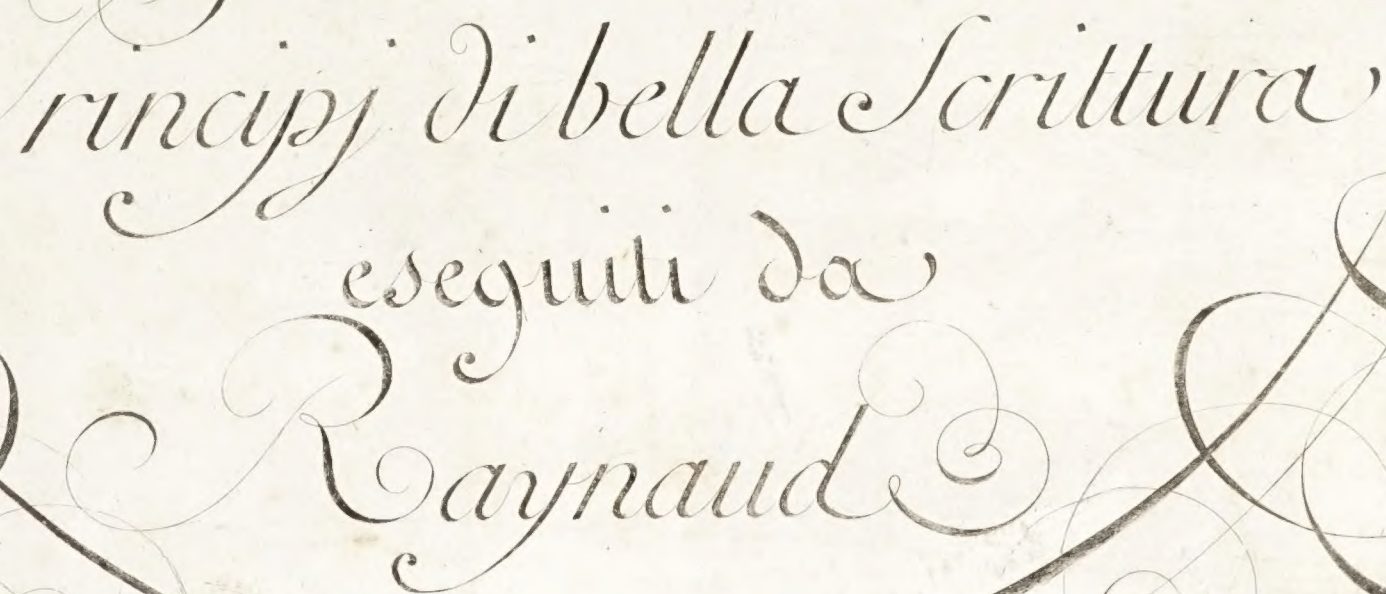 Principj di bella Scrittura
eseguiti da
Raynaud